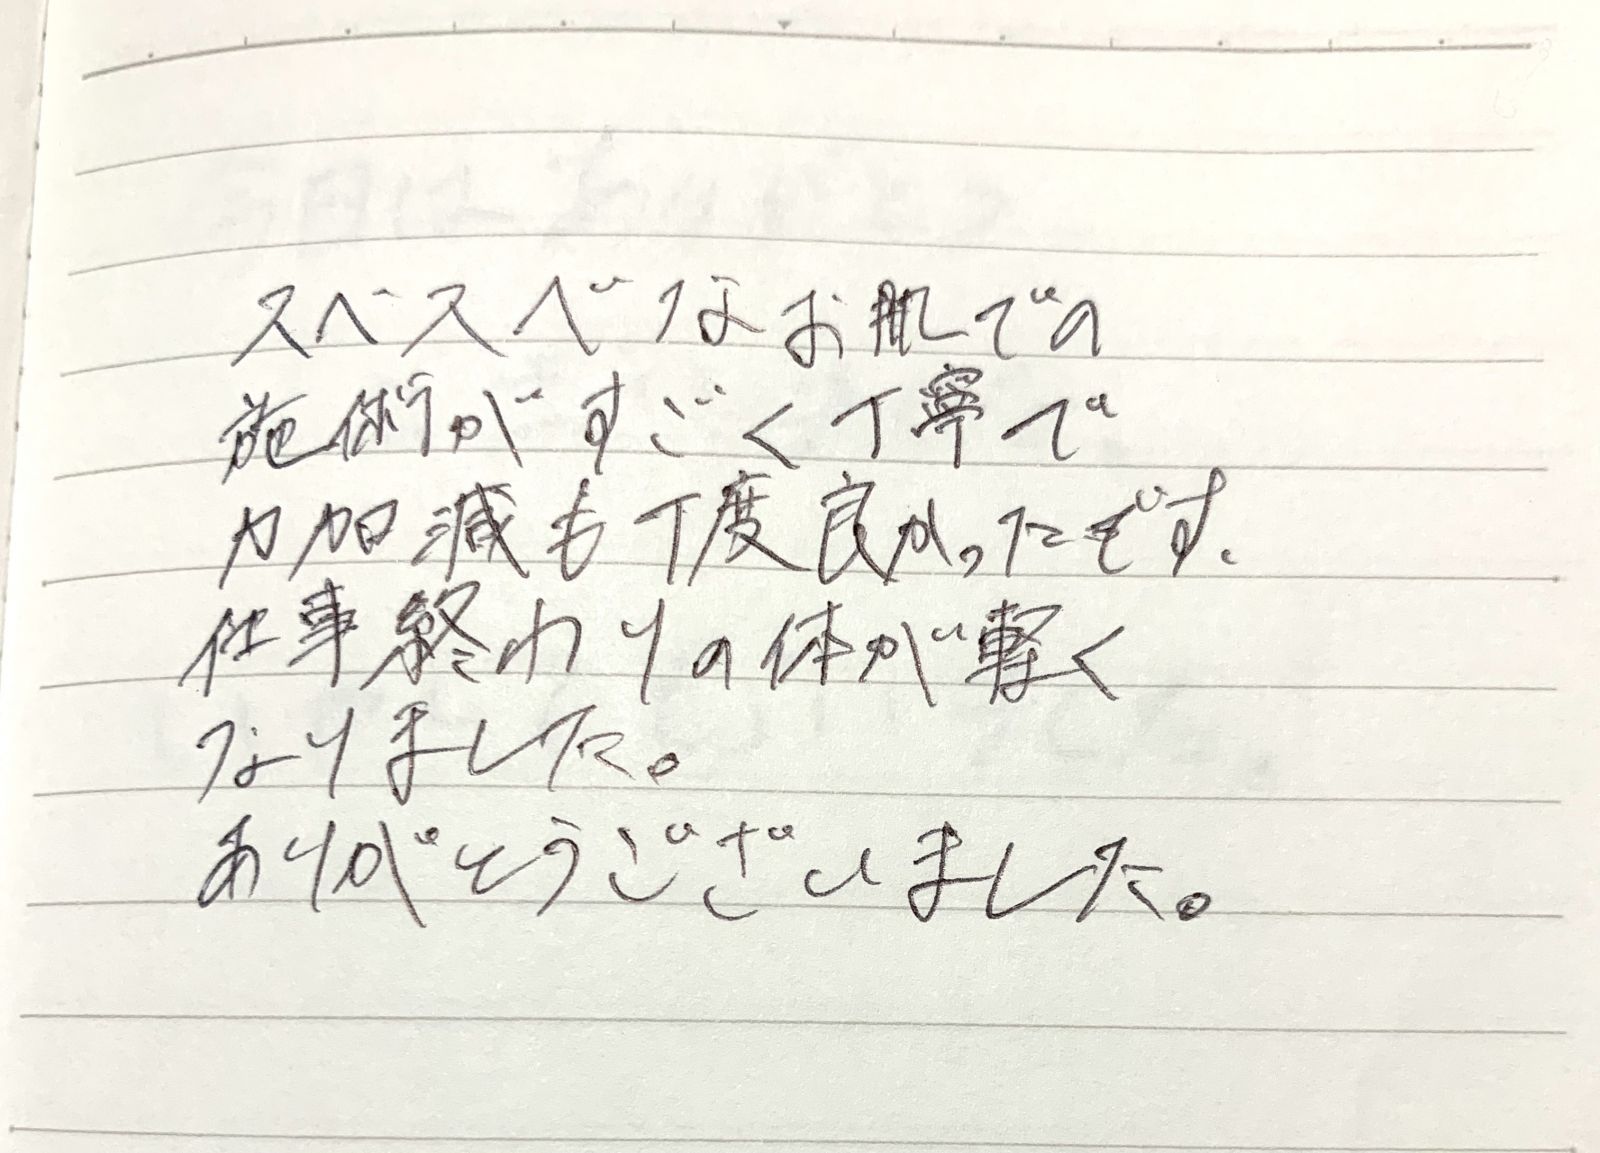 スベスベなお肌での
施術がすごく丁寧で
力加減も丁度良かったです。
仕事終わりの体が軽く
なりました。
ありがとうございました。